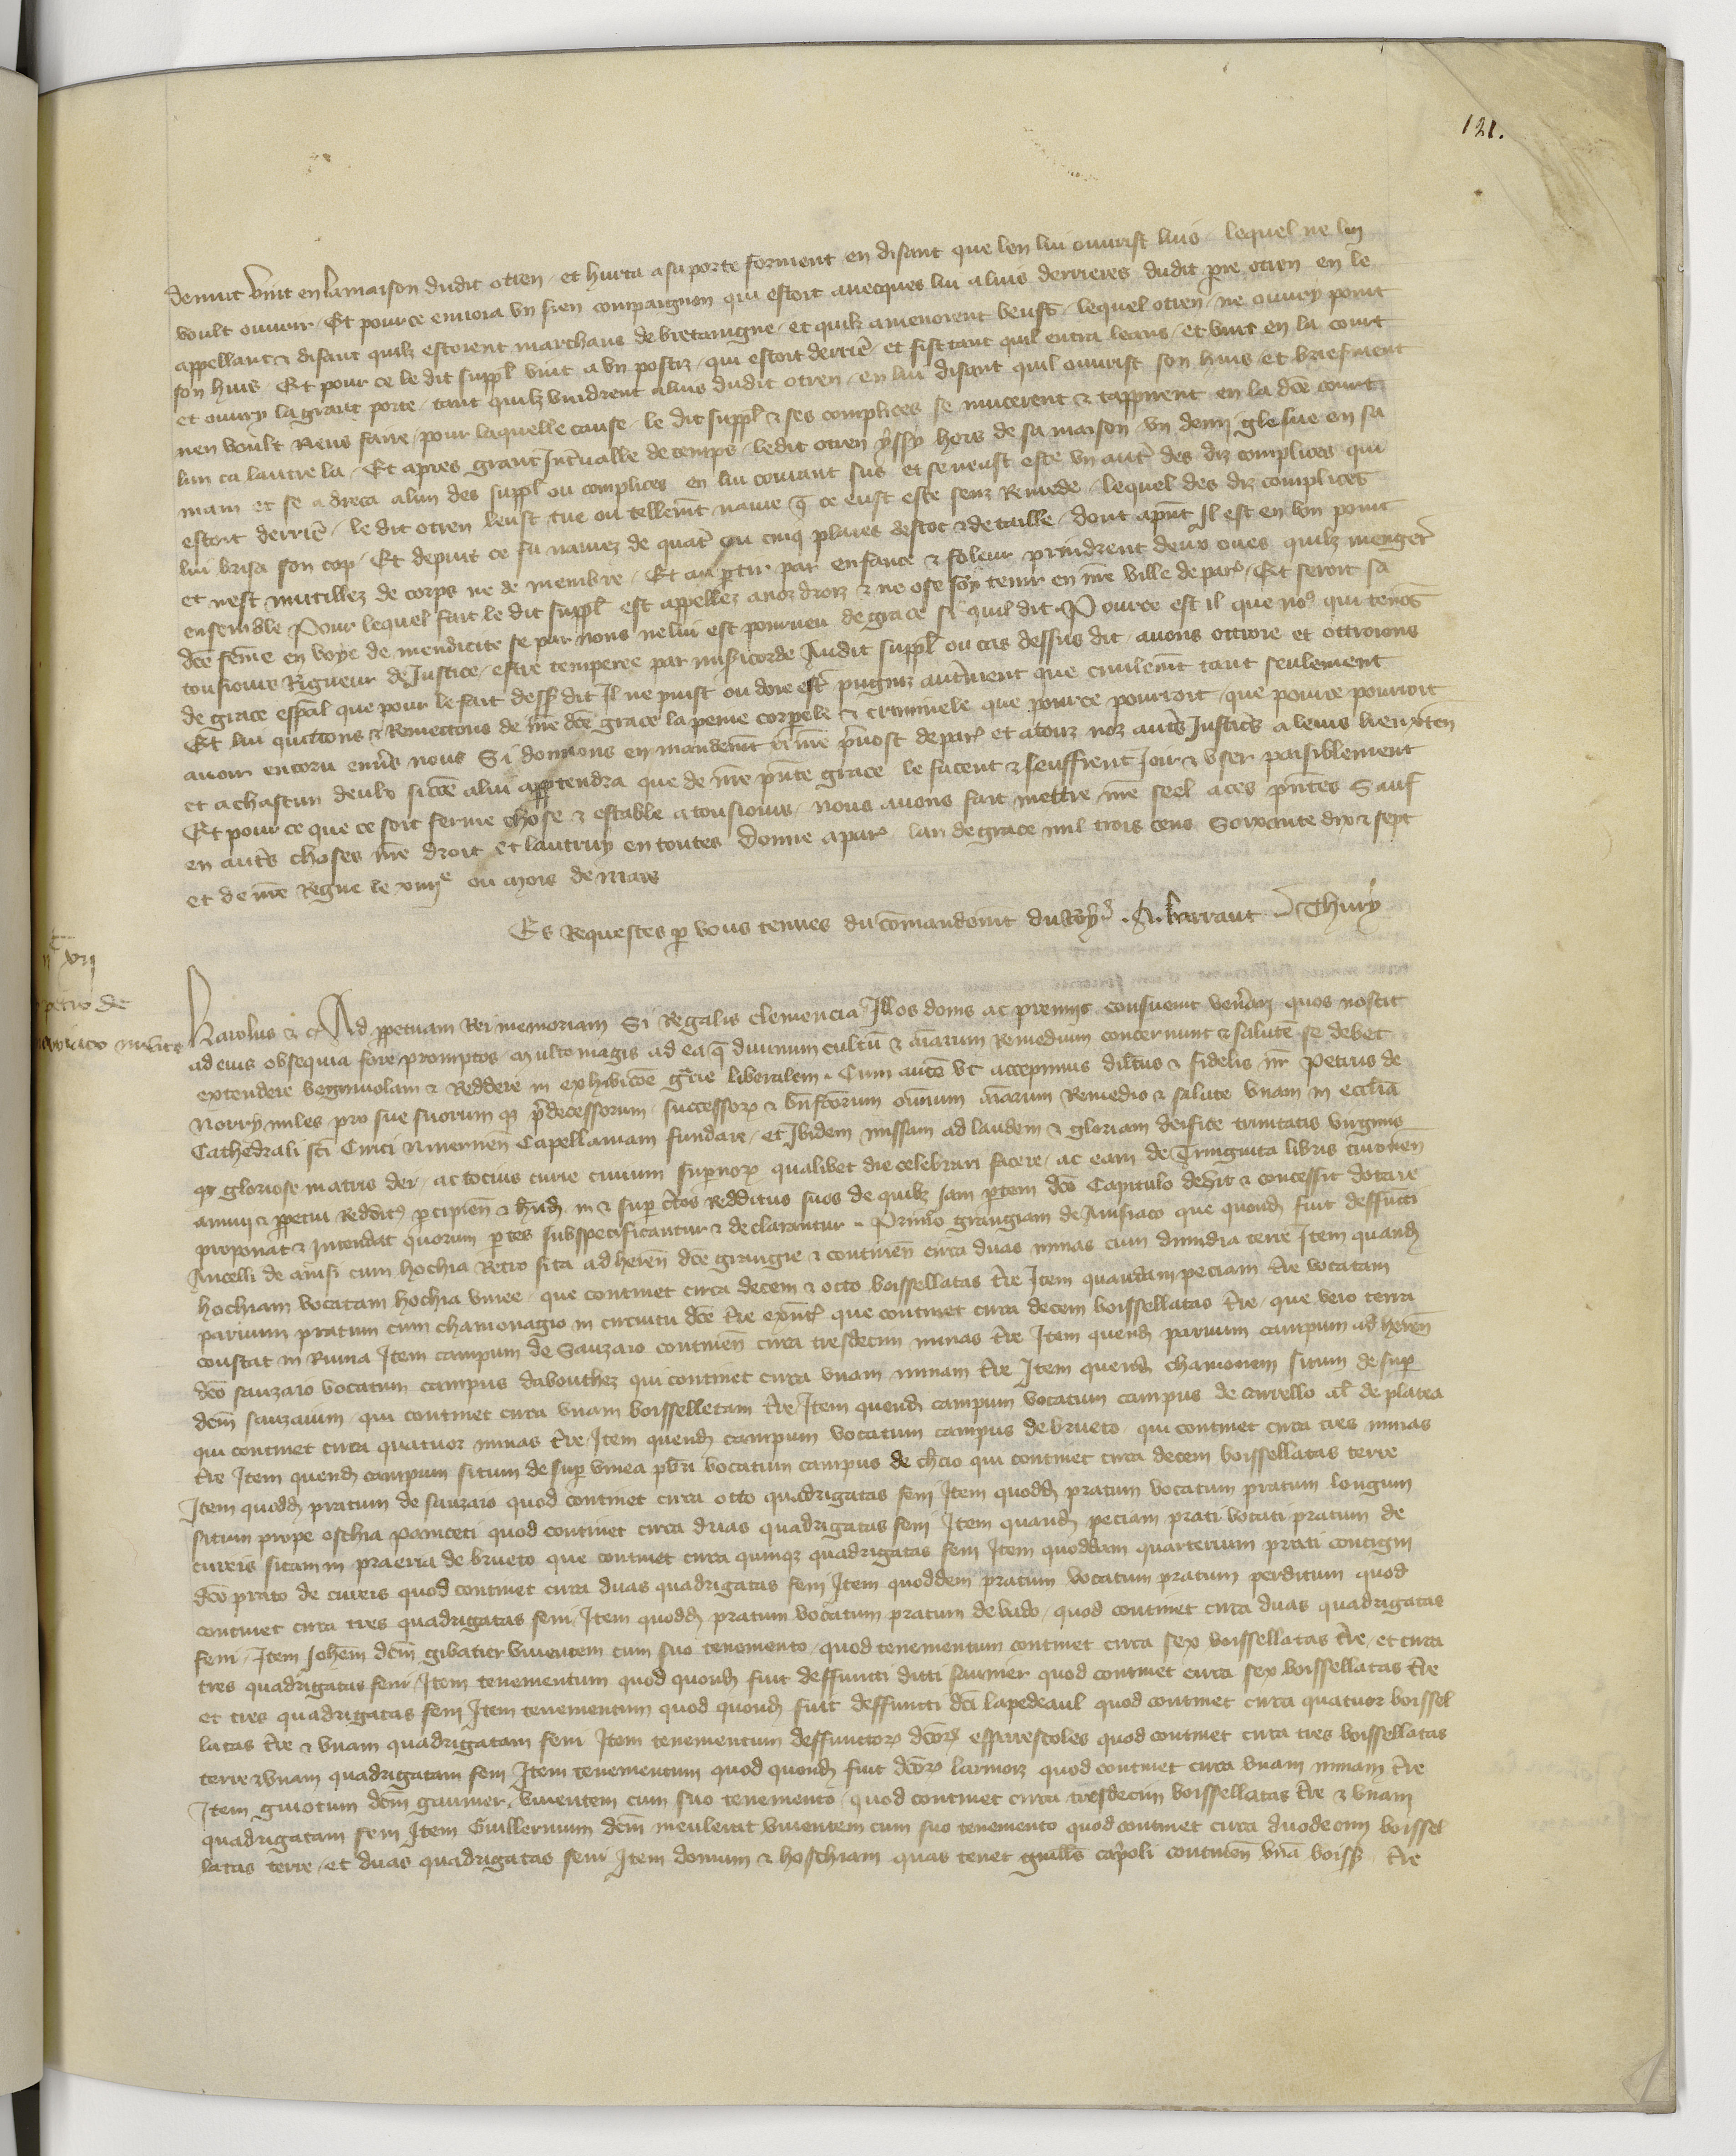 121.
denuit vint en la maison dudit otren et hurta a sa porte forment en disant que len lui ouvrist luis lequel ne luy
voult ouvrir Et pource envoia un sien compaignon qui estoit avecques lui a luis derrieres dudit otren en le
appellant & disant quilz estoient marchans de bretaingne et quilz amenoient beufs lequel otren ne ouvry point
son huis Et pour ce le dit suppl vint a un postiz qui estoit derrie et fist tant quil entra leans et vint en la court
et ouvry la grant porte tant quilz vindrent a luis dudit otren en lui disant quil ouvrist son huis et briefment
nen voult riens faire pour laquelle cause le dit suppl & ses complices se mucerent & tappirent en la dce court
lun ca lautre la Et apres grant Intvalle de temps ledit otren yssy hors de sa maison un demi glesve en sa
main et se adreca a lun des suppl ou complices en lui courant sus et se neust este un aut des diz complices qui
estoit derrie le dit otren leust tue ou tellemt navre q ce eust este senz Remede lequel des diz complices
lui brisa son cop Et depuit ce fu navrez de quat ou cinq plaies destoc & de taille dont apnt Il est en bon point
et nest mutillez de corps ne de membre Et au ptir par enfance & foleur prindrent deux oues quilz menger
ensemble Pour lequel fait le dit suppl est appellez a noz droiz & ne ose soy tenir en nre ville de par Et seroit sa
dce feme en voye de mendicite se par nous ne lui est pourveu de grace si quil dit Pource est il que nos qui tenos
tousiours Rigueur de Justice estre temperee par misicorde Audit suppl ou cas dessus dit avons ottroie et ottroions
de grace espal que pour le fait dess dit Il ne puist ou doie est pugniz autment que civilemt tant seulement
Et lui quittons & Remettons de nre dce grace la peine corpele & criminele que pource pourroit que pource pourroit
avoir encoru envs nous Si donnons en mandemt a nre pvost de par et a touz noz auts Justics a leurs lieuxten
et a chascun deulx sicoe a lui apptendra que de nre pnte grace le facent & seuffrent Joir & user paisiblement
Et pour ce que ce soit ferme chose & estable a tousiours nous avons fait mettre nre seel a ces pntes Sauf
en auts choses nre droit et lautruy en toutes Donne a par lan de grace mil trois cens Soixante dix & sept
et de nre Regne le xiiiie ou mois de mars
Es Requestes p vous tenues du comandemt du Roy Thury
xvii
petro de
milite
Karolus & c Ad ppetuam Rei memoriam Si Regalis clemencia Illos donis ac premijs consuevit venari quos noscit
ad eius obsequia fore promptos multo magis ad ea q divinum cultu & aiarum Remedium concernunt & salute se debet
extendere begnivolam & Reddere in exhibicoe gre liberalem Cum aute ut accepimus diltus & fidelis nr Petrus de
Norry miles pro sue suorum q pdecessorum successor & bnfcorum omnium aiarum Remedio & salute unam in ecclia
Cathedrali sci Cirici Nivernen Capellaniam fundare et Ibidem missam ad laudem & gloriam deifice trinitatis virginis
q gloriose matris dei ac tocius curie civium supnor qualibet die celebrari facere ac eam de Triginta libris turonen
annui & ppetui Reddit pcipien & hnd in & sup ctos Redditus suos de quibz jam ptem dco Capitulo dedit & concessit dotare
proponat & Intendat quorum ptes subspecificantur & declarantur Primo grangiam de Anisiaco que quond fuit deffucti
Ancelli de anisi cum hochia Retro sita ad heren dce grangie & continen circa duas minas cum dimidia terre Item quand
hochiam vocatam hochia vinee que continet circa decem & octo boissellatas tre Item quandam peciam tre vocatam
parvum pratum cum chamonagio in circuitu dce tre exnt que continet circa decem boissellatas tre que vero terra
constat in Ruina Item campum de Sauzaio continen circa tresdecim minas tre Item quend parvum campum ad heren
dco sauzaio vocatum campus dabouthez qui continet circa unam minam tre Item quend chamonem situm de sup
dcm sauzaium qui continet circa unam boisselletam tre Item quend campum vocatum campus de currello al de platea
qui continet circa quatuor minas tre Item quend campum vocatum campus de brueto qui continet circa tres minas
tre Item quend campum situm de sup vinea pbri vocatum campus de chcio qui continet circa decem boissellatas terre
Item quodd pratum de sauzaio quod continet circa octo quadrigatas feni Item quodd pratum vocatum pratum longum
situm prope oschia panceti quod continet circa duas quadrigatas feni Item quand peciam prati vocati pratum de
cureis sitam in praeria de brueto que continet circa quinqz quadrigatas feni Item quoddam quarterium prati contigui
dco prato de cureis quod continet circa duas quadrigatas feni Item quoddem pratum vocatum pratum perditum quod
continet circa tres quadrigatas feni Item quodd pratum vocatum pratum de vado quod continet circa duas quadrigatas
feni Item Johem dcm gibatier viventem cum suo tenemento quod tenementum continet circa sex boissellatas tre et circa
tres quadrigatas feni Item tenementum quod quond fuit deffuncti dicti saunier quod continet circa sex boissellatas tre
et tres quadrigatas feni Item tenementum quod quond fuit deffuncti dci lapedeaul quod continet circa quatuor boissel
latas tre & unam quadrigatam feni Item tenementum deffunctor dcor esparrescoles quod continet circa tres boissellatas
terre & unam quadrigatam feni Item tenementum quod quond fuit dcor larmoiz quod continet circa unam minam tre
Item guiotum dcm gaunier viventem cum suo tenemento quod continet circa tresdecim boissellatas tre & unam
quadrigatam feni Item Guillermum dcm meulerat viventem cum suo tenemento quod continet circa duodecim boissel
latas terre et duas quadrigatas feni Item domum & hoschiam quas tenet guills capoli continen una boiss tre